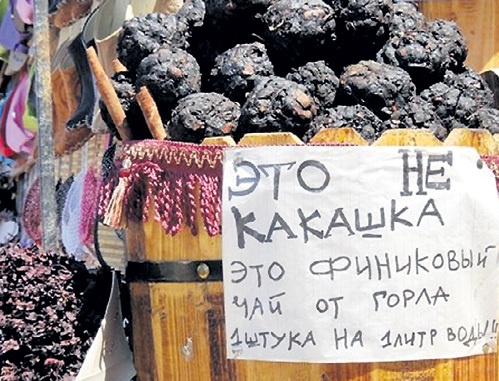 ЭТО НЕ
КАКАШКА
ЭТО ФИНИКОВЫЙ
ЧАЙ ОТ ГОРЛА
1 ШТУКА НА 1 ЛИТР ВОДЫ!!!